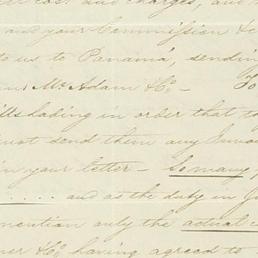 cost and charges, and
and your Commission &c
to us to Panamá, sending
Mc Adam & Co. — To
lading in order that to
not send them any Invoi
in your letter — So many
. . . . . and as the duty in
mention only the actual c
& Co, having agreed to